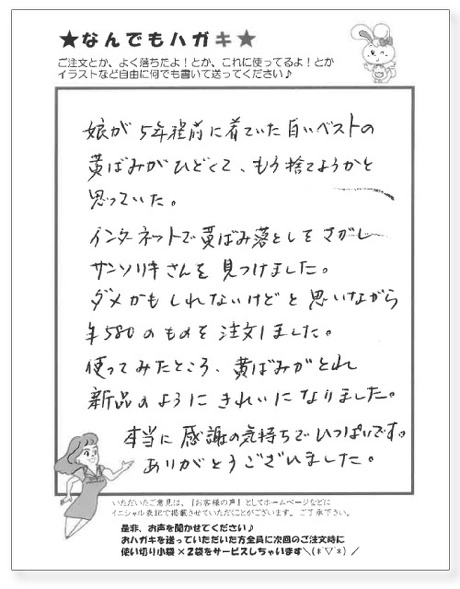 ★なんでもハガキ★
ご注文とか、よく落ちたよ！とか、これに使ってるよ！とか
イラストなど自由に何でも書いて送ってください♪
娘が 5年程前に着ていた白いベストの
黄ばみがひどくて、もう捨てようかと
思っていた。
インターネットで黄ばみ落としをさがし
サンソリキさんを見つけました。
ダメかもしれないけどと思いながら
¥580のものを注文しました。
使ってみたところ、黄ばみがとれ
新品のようにきれいになりました。
本当に感謝の気持ちでいっぱいです。
ありがとうございました。
いただいたご意見は、『お客様の声』としてホームページなどに
イニシャル表記で掲載させていただことがございます。ご了承下さい。
是非、お声を聞かせてください♪
おハガキを送っていただいた方全員に次回のご注文時に
使い切り小袋×2袋をサービスしちゃいます＼(*ˊ▽ˋ*)／